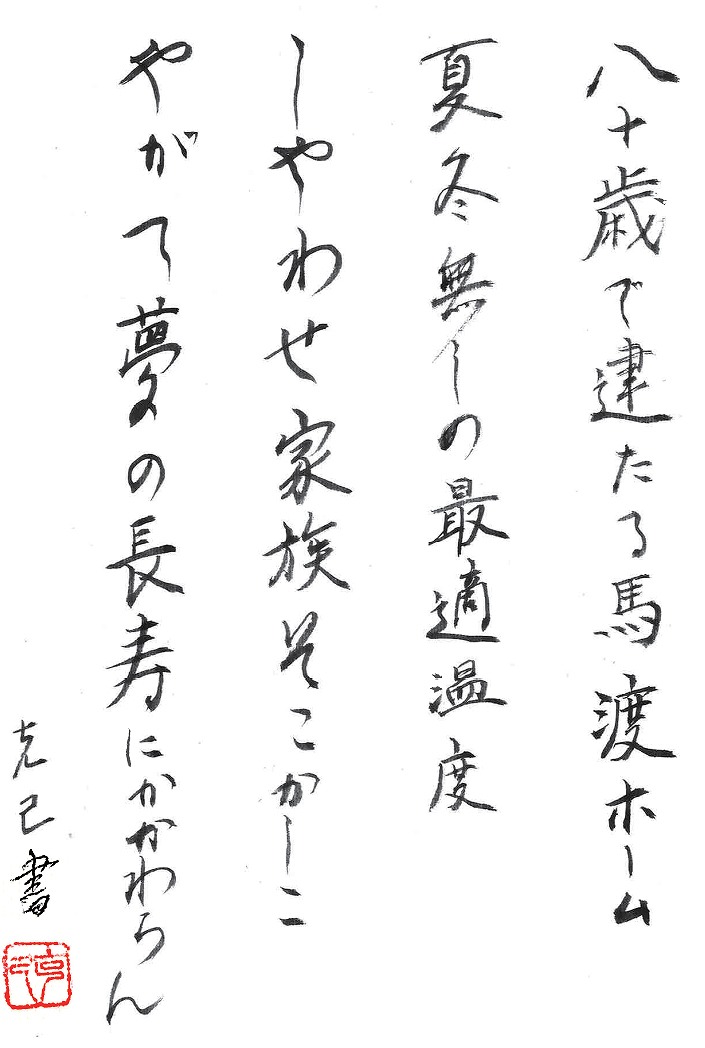 八十歳で建たる馬渡ホーム
夏冬無しの最適温度
しやわせ家族そこかしこ
やがて夢の長寿にかかわらん
克己書